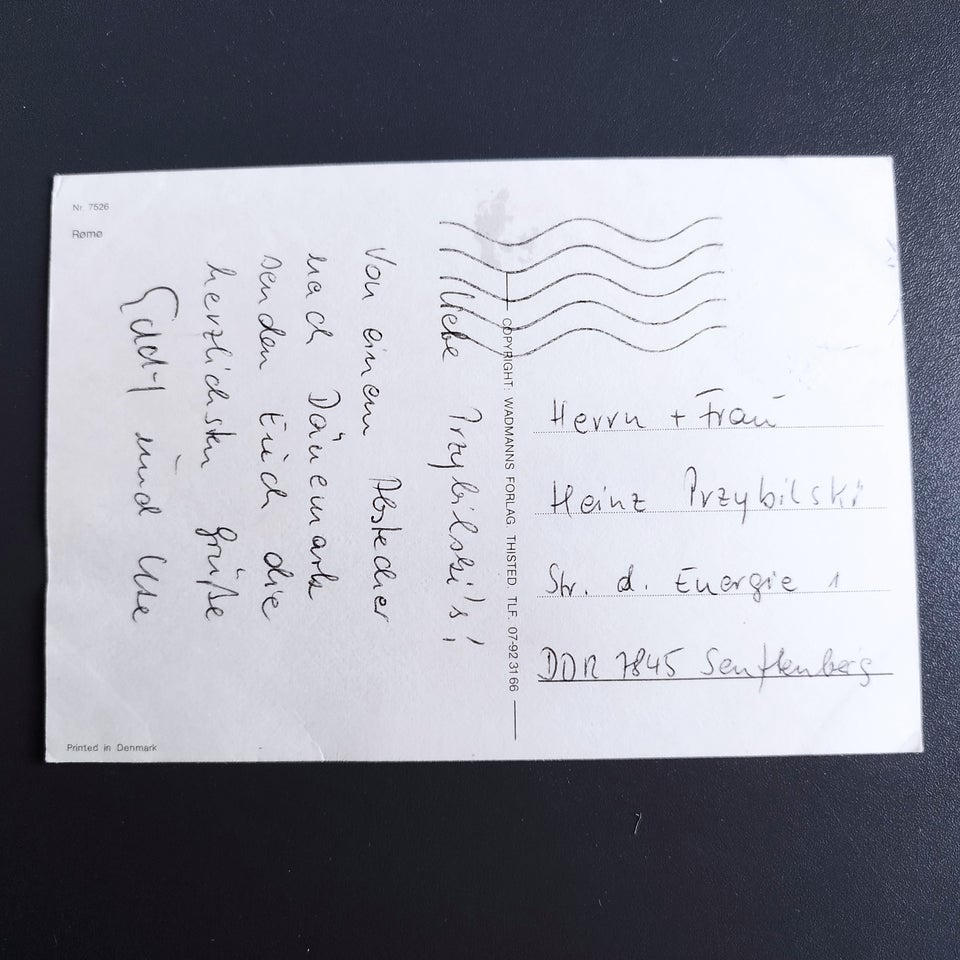 Nr. 7526
Rømø
Liebe Przybilski's!
Von einem Abstecher
nach Dänemark
senden Euch die
herzlichsten Grüße
Eddy und Ute
Printed in Denmark
COPYRIGHT: WADMANNS FORLAG. THISTED. TLF. 07-92 31 66
Herrn + Frau
Heinz Przybilski
Str. d. Energie 1
DDR 7845 Senftenberg